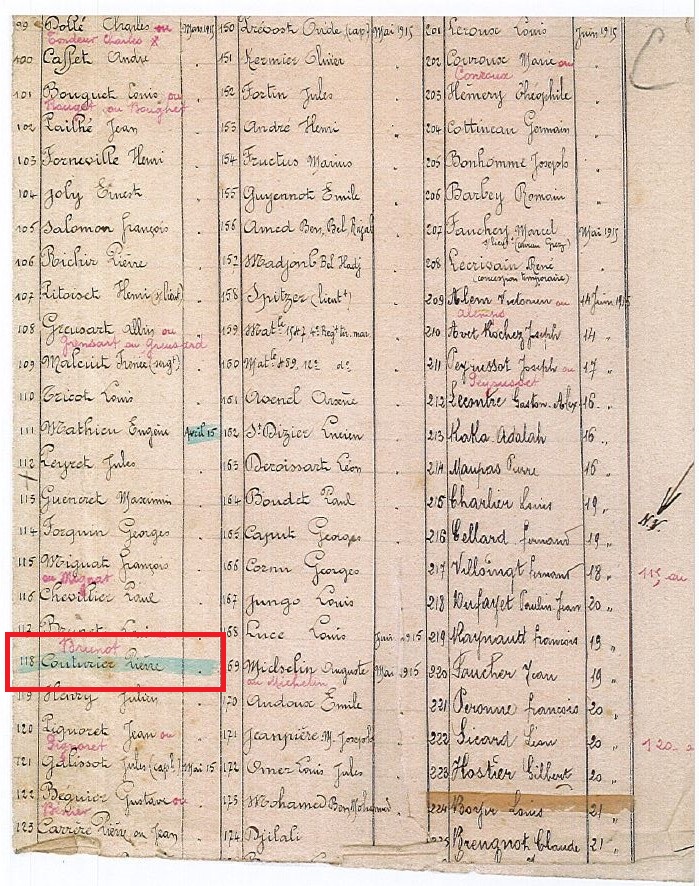 99 Dollé Charles ou Mars 1915
Tondeur Charles
100 Casset André "
101 Bouquet Louis ou "
Bauget ou Bougher
102 Lailhé Jean "
103 Forneville Henri "
104 Joly Ernest "
105 Salomon François "
106 Richir Pierre "
107 Pitoiset Henri (s/lieut) "
108 Greusart Albin ou "
Grensart ou Greusard
109 Malcuit Frénée (sergt) "
110 Tricot Louis "
111 Mathieu Eugène Avril 15
112 Leyret Jules "
113 Gueneret Maximin "
114 Forquin Georges "
115 Miguat François "
ou Mignat
116 Chevillier Paul "
117 Brunet
Brunot
118 Couturier Pierre "
119 Henry Julien "
120 Pignoret Jean ou "
121 Galissot Jules (capl) Mai 15
122 Beguier Gustave ou "
123 Carrère Pierre ou Jean
150 Prévost Ovide (cap) Mai 1915
151 Kermier Olivier
152 Fortin Jules
153 André Henri "
154 Fructus Marius "
155 Guyennot Emile "
156 Amed Ben Bel "
157 Madjoub Bel Hadj "
158 Spitzer (lieutt) "
159 Matle 1547 4e Regt inf. mar.
160 Matle 459, 12e do "
161 Avenel Arsène "
162 St Dizier Lucien "
163 Deroissart Léon "
164 Boudet Paul "
165 Caput Georges "
166 Cornu Georges "
167 Jungo Louis "
168 Luce Louis Juin 1915
169 Midselin Auguste Mai 1915
ou Michelin
170 Andoux Emile "
171 Jeanpière M. Joseph "
172 Omer Louis Jules "
173 Mohamed Ben Mohamed
174 Djilali
201 Leroux Louis Juin 1915
202 Couroux Marie ou "
Conraux
203 Hémery Théophile "
204 Cottineau Germain "
205 Bonhomme Joseph "
206 Barbey Romain "
207 Fauchey Marcel Mai 1915
208 Lecrivain René
(concession temporaire)
209 Alem ou 14 Juin 1915
210 Avet Rochez Joseph 14 "
211 Peyressot Joseph ou 17 "
212 Lecontre Gaston Alex 16 "
213 Kakla Adalah 16 "
214 Maupas Pierre 16 "
215 Charlier Louis 19 "
216 Cellard Fernand 19 "
217 Villoingt Fernand 18 "
218 Dufayet Paulin Jean 20 "
219 Raynaud François 19 "
220 Faucher Jean 19 "
221 Peronne François 20 "
222 Sicard Léon 20 "
223 Hostier Gilbert 20 "
224 Boyer Louis 21 "
225 Brengnot Claude 21 "
115 au
120